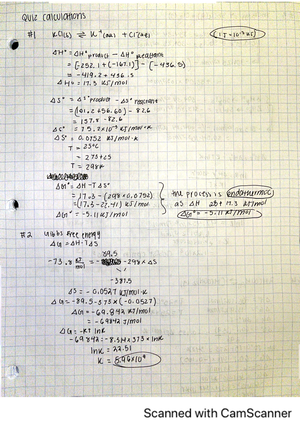 Quiz calculations
#1 KCl(s) ⇌ K⁺(aq) + Cl⁻(aq)
ΔH° = ΔH°product - ΔH°reactant
= [-252.1 + (-167.1)] - [-436.5]
= -419.2 + 436.5
ΔH° = 17.3 KJ/mol
ΔS° = ΔS°product - ΔS°reactant
= (101.2 + 56.60) - 82.6
= 157.8 - 82.6
ΔS° = 75.2 × 10⁻³ KJ/mol·K
ΔS° = 0.0752 KJ/mol·K
T = 25°C
= 273 + 25
T = 298K
ΔG° = ΔH - TΔS°
= 17.3 - (298 × 0.0752)
= (17.3 - 22.41) KJ/mol
ΔG° = -5.11 KJ/mol
the process is endothermic
as ΔH is + 17.3 KJ/mol
ΔG° = -5.11 KJ/mol
#2 Gibbs free energy
ΔG = ΔH - TΔS
89.5
-73.8 KJ/mol = - -298 × ΔS
ΔS = -0.0527 KJ/mol·K
ΔG = -89.5 - 373 × (-0.0527)
ΔG = -69.842 KJ/mol
= -69842 J/mol
ΔG = -RT lnK
-69842 = -8.314 × 373 × lnK
lnK = 22.51
K = 5.96 × 10⁹
Scanned with CamScanner